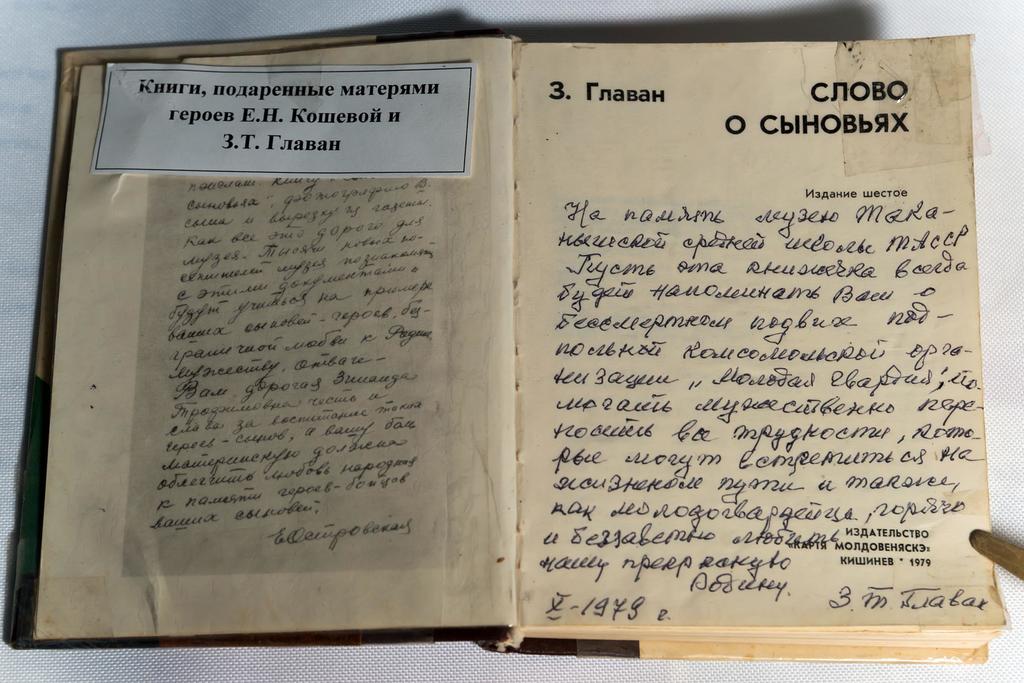 Книги, подаренные матерями
героев Е.Н. Кошевой и
З.Т. Главан
книгу
сыновья", фотографию В.
сына и вырезку из газеты.
Как все это дорого для
музея. Тысячи новых по-
сетителей музея познакомятся
с этими документами и
будут учиться на примере
ваших сыновей-героев, без-
граничной любви к Родине,
мужеству, отваге.
Вам, дорогая Зинаида
Трофимовна честь и
слава за воспитание таких
героев-сынов, а вашу боль
материнскую должна
облегчить любовь народная
к памяти героев-бойцов
ваших сыновей.
Е Островская
З. Главан
СЛОВО
О СЫНОВЬЯХ
Издание шестое
На память музею Така-
нышской средней школы ТАССР
Пусть эта книжечка всегда
будет напоминать Вам о
бессмертном подвиге под-
польной комсомольской орга-
низации „Молодая гвардия", по-
могать мужественно пере-
носить все трудности, кото-
рые могут встретиться на
жизненом пути и также,
как молодогвардейцы, горячо
и беззаветно любить
нашу прекрасную
Родину.
ИЗДАТЕЛЬСТВО
«КАРТЯ МОЛДОВЕНЯСКЭ»
КИШИНЕВ * 1979
X-1979 г.
З. Т. Главан